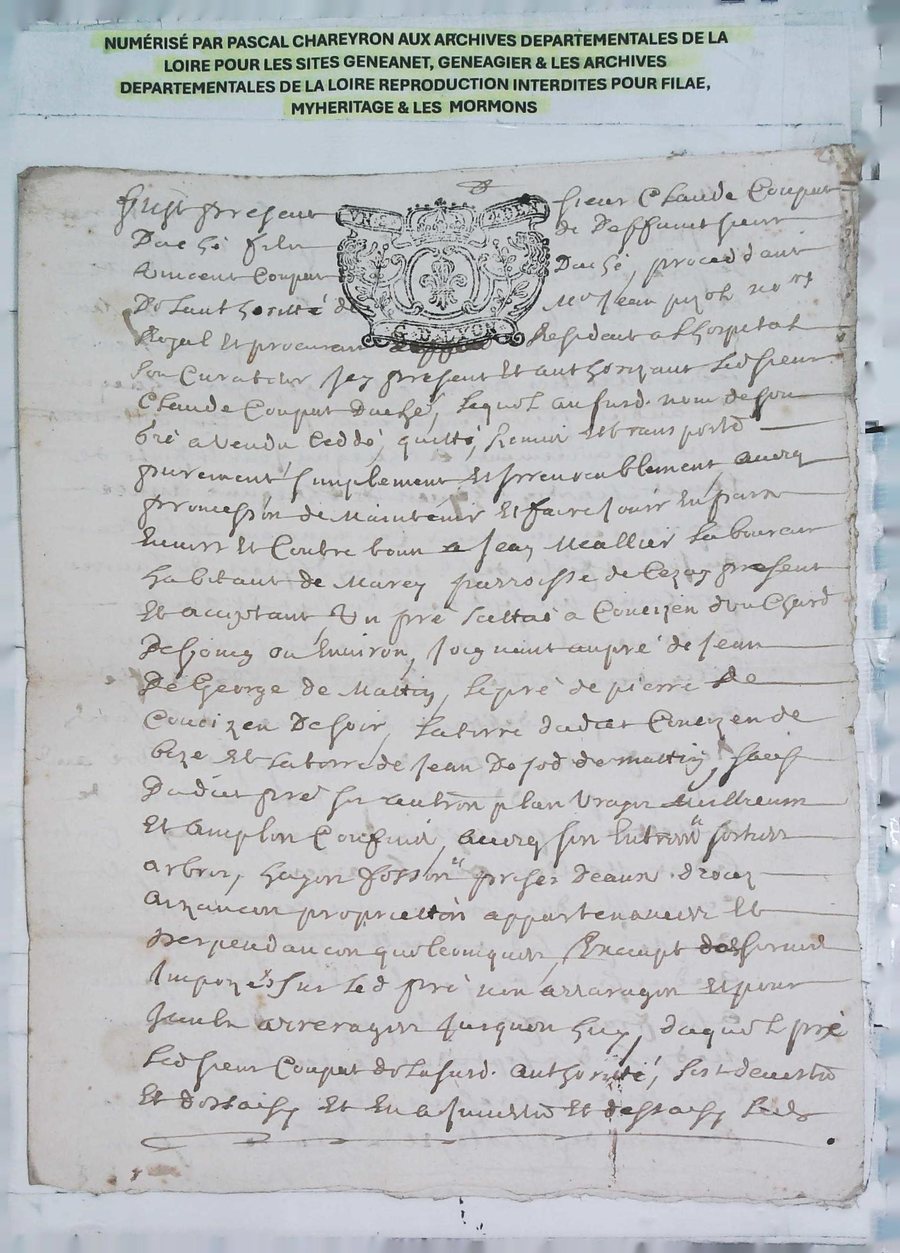 NUMÉRISÉ PAR PASCAL CHAREYRON AUX ARCHIVES DEPARTEMENTALES DE LA
LOIRE POUR LES SITES GENEANET, GENEAGIER & LES ARCHIVES
DEPARTEMENTALES DE LA LOIRE REPRODUCTION INTERDITES POUR FILAE,
MYHERITAGE & LES MORMONS
present sieur Claude Coupat
Daché filz de deffunt sieur
Vincent Coupat Daché, proceddant
De lauthoritté de Me Jean
Royal et procureur Resident a lhospital
son Curateur Icy present et authorizant led sieur
Claude Coupat Daché, lequel au susd. nom de son
gré a vendu ceddé, quitté, remis et transporté
purement simplement et irrevocablement avecq
promession de maintenir et faire jouir en paix
envers et contre tous a Jean Mallier laboureur
habitant de parroisse de Cezay present
et acceptant un pré scittué a Coueizen dou Chard
De ou environ, joignant au pré de Jean
De George de Mattin, le pré de pierre de
Coueizen De soir, la terre dudit Coueizen de
bize et la terre de Jean De de mattin, sauf
Dudit pré ses autres plus vrayes meilleurs
et amples confins, avecq ses entrées sorties
arbres, hayes fossés prises deaux droictz
aizances proprietés appartenances et
perpendances quelconques, Excepté
Impozés sur led pré non arrerages et pour
arrerages jusques huy, duquel pré
Led sieur Coupat de la susd. authorité, sest devestu
et dessaisy et en a Investu et saisy led
G. D. LYON